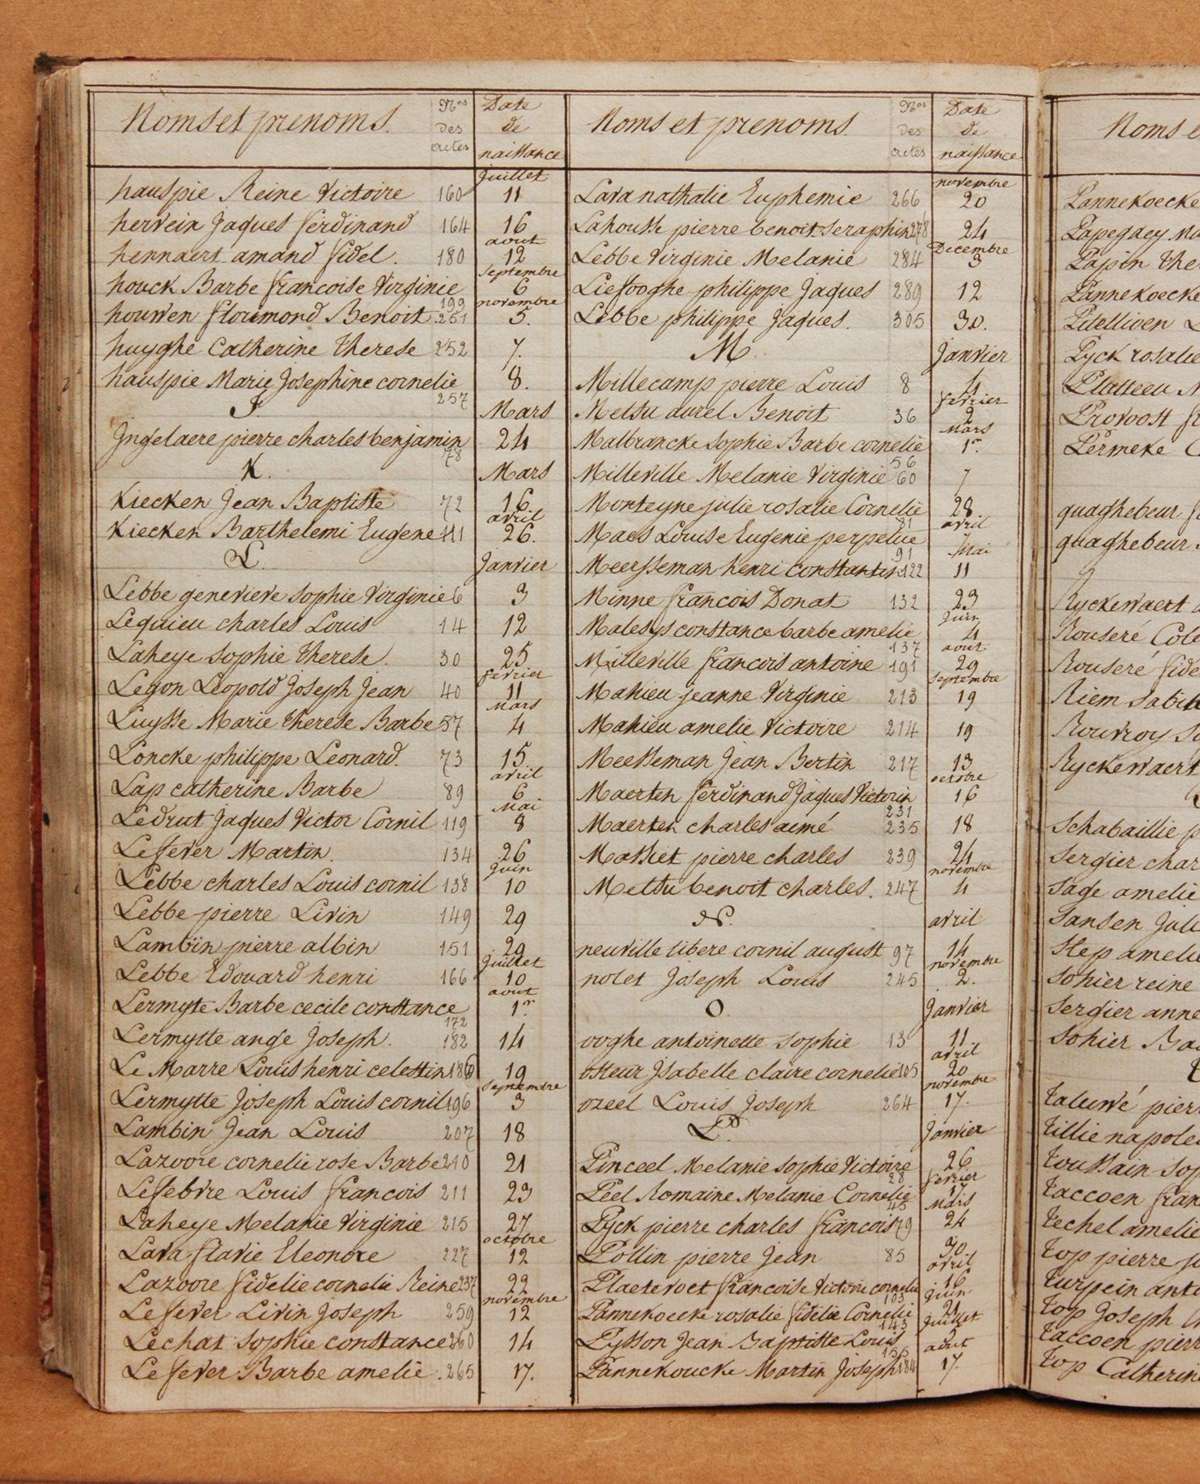 Noms et prenoms. Nos des actes Date de naissance
juillet
hauspie Reine Victoire 160 11
hervein Jaques ferdinand 164 16
aout
hennaert amand fidel. 180 12
Septembre
houck Barbe francoise Virginie 199 6
novembre
houven floumond Benoit 251 5.
huyghe Catherine therese 252 7.
hauspie Marie Josephine cornelie 257 8.
J Mars
Ingelaere pierre charles benjamin 78 24
K. Mars
Kiecken Jean Baptiste 72 16.
avril
Kiecken Barthelemi Eugene 111 26.
L. Janvier
Lebbe genevieve sophie Virginie 6 3
Lequieu charles Louis 14 12
Laheye sophie therese. 30 25
fevrier
Legon Leopold Joseph Jean 40 11
Mars
Luysse Marie therese Barbe 57 4
Loncke philippe Leonard 73 15.
avril
Lap catherine Barbe 89 6
Mai
Ledrut Jaques Victor Cornil 119 8
Lefever Martin. 134 26
Juin
Lebbe charles Louis cornil 138 10
Lebbe pierre Livin 149 29
Lambin pierre albin 151 29
juillet
Lebbe Edouard henri 166 10
aout
Lermyte Barbe cecile constance 172 1er
Lermytte ange Joseph. 182 14
Le Marre Louis henri celestin 186 19
Septembre
Lermytte Joseph Louis cornil 196 3
Lambin Jean Louis 207 18
Lazoore cornelie rose Barbe 210 21
Lefebvre Louis francois 211 23
Laheye Melanie Virginie 215 27
octobre
Lava flavie Eleonore 227 12
Lazoore fidelie cornelie Reine 237 22
novembre
Lefever Livin Joseph 259 12
Lechat Sophie constance 260 14
Lefever Barbe amelie. 265 17.
Noms et prenoms Nos des actes Date de naissance
novembre
Lava nathalie Euphemie 266 20
Lahousse pierre benoit seraphin 278 24
Decembre
Lebbe Virginie Melanie 284 3
Liefooghe philippe Jaques 289 12
Lebbe philippe Jaques. 305 30.
M. Janvier
Millecamp pierre Louis 8 4
fevrier
Metsu aurel Benoit 36 2
Mars
Malbrancke Sophie Barbe cornelie 56 1er
Milleville Melanie Virginie 60 7
Monteyne julie rosalie Cornelie 81 28.
avril
Maes Louise Eugenie perpetue 91
Mai
Meesseman henri constantin 122 11
Minne francois Donat 132 23
Juin
Malesys constance barbe amelie 137 4
aout
Milleville francois antoine 191 29
septembre
Mahieu jeanne Virginie 213 19
Mahieu amelie Victoire 214 19
Meesseman Jean Bertin 217 13
octobre
Maerten ferdinand Jaques Victorin 231 16
Maerten charles aimé 235 18
Massiet pierre charles 239 24
novembre
Metsu benoit charles. 247 4
N. avril
neuville libere cornil august 97 14
novembre
nolet Joseph Louis 245 2.
O. Janvier
ooghe antoinette sophie 13 11
avril
osteur Isabelle claire cornelie 105 20
novembre
ozeel Louis Joseph 264 17.
P. Janvier
Pinceel Melanie sophie Victoire 28 26
fevrier
Peel Romaine Melanie Cornelie 45 17
Mars
Pyck pierre charles francois 79 24
Pollin pierre Jean 85 30
avril
Plaetevoet francoise Victoire cornelie 103 16
juin
Pannekoecke rosalie fidelie Cornelie 143 21
Juillet
Pysson Jean Baptiste Louis 155 5
aout
Pannekoucke Martin Joseph 184 17.
Noms e
Pannekoecke
Papegaey Ma
Papin the
Pannekoecke
Pitellioen
Pyck rosalie
Platteeu M
Provoost f
Permeke C
quaghebeur f
quaghebeur
Ryckewaert a
Rouseré Cole
Rouseré fide
Riem Sabi
Rouvroy So
Ryckewaert
Schabaillie p
Sergier char
Sage amelie
Sansen Juli
Step amelie
Sohier reine
Sergier anne
Sohier Ba
taluvé pier
tillie napole
toussain sop
taccoen fran
techel amelie
top pierre j
turpein anto
top Joseph
taccoen pierr
top Catherin